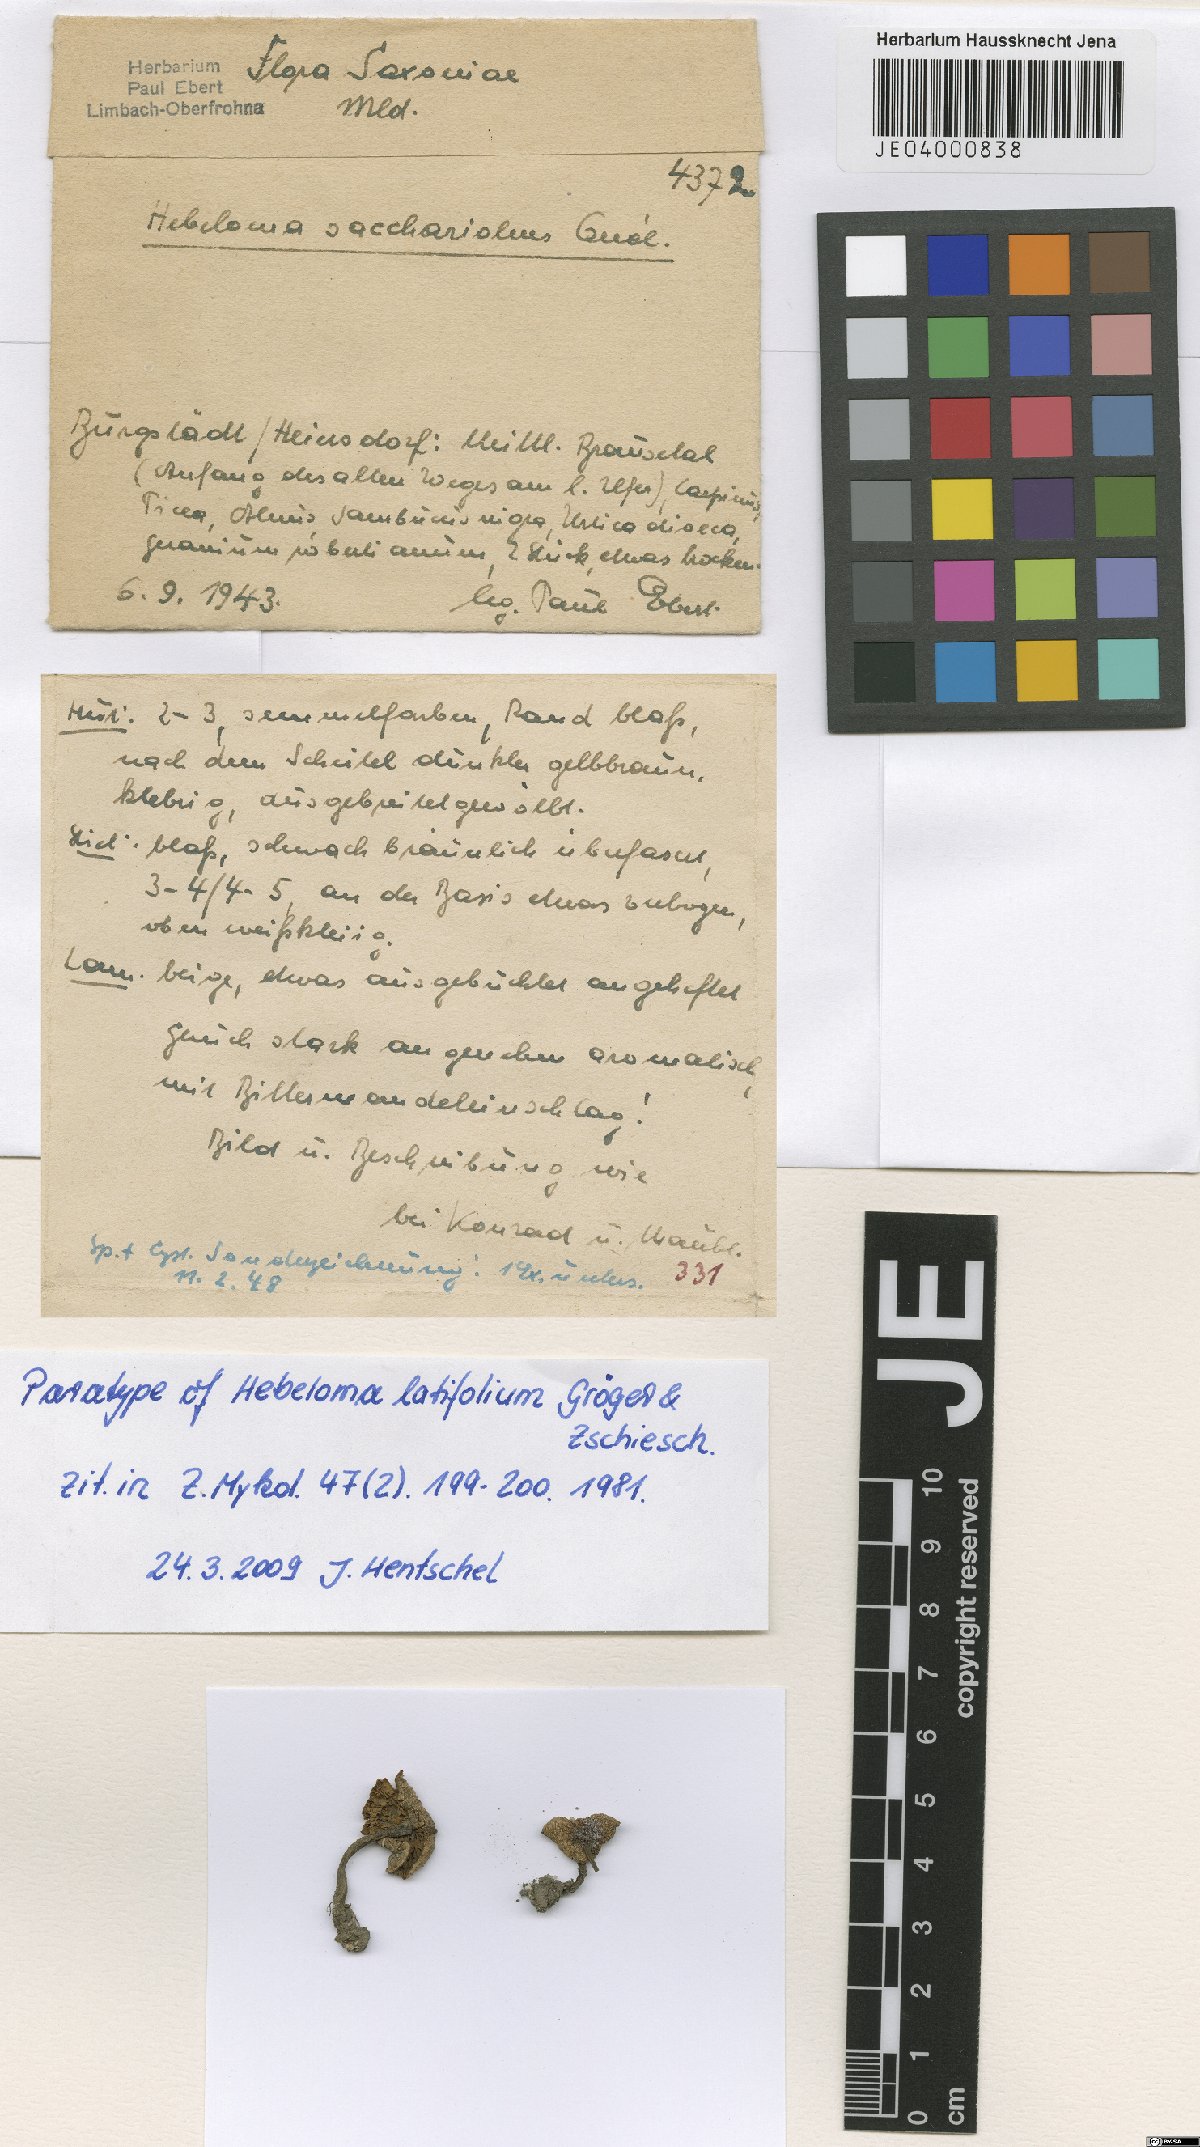 Herbarium
Paul Ebert
Limbach-Oberfrohna
Flora Saxoniae
Mld.
4372
Hebeloma sacchariolens Quél.
Burgstädt/Heinsdorf: Mittl. Brausetal
(Anfang des alten Weges am l. Ufer), Carpinus,
Picea, Alnus, Sambucus nigra, Urtica dioeca,
Geranium robertianum, 2 Stück, etwas trocken.
6. 9. 1943.
leg. Paul Ebert.
Hut: 2-3, semmelfarben, Rand blaß,
nach dem Scheitel dunkler gelbbraun,
klebrig, ausgebreitet gewölbt.
Stiel: blaß, schwach bräunlich überfasert,
3-4/4-5, an der Basis etwas verbogen,
oben weißkleiig.
Lam. beige, etwas ausgebuchtet angeheftet
Geruch stark angenehm aromatisch,
mit Bittermandeleinschlag!
Bild u. Beschreibung wie
bei Konrad u. Maubl.
Sp. + Cyst. Sonderzeichnung! 1 Ex. unters. 331
11. 2. 48
Paratype of Hebeloma latifolium Gröger &
Zschiesch.
Zit. in Z. Mykol. 47(2). 199-200. 1981.
24.3.2009 J. Hentschel
Herbarium Haussknecht Jena
JE04000838
JE
copyright reserved
10
9
8
7
6
5
4
3
2
1
0
cm